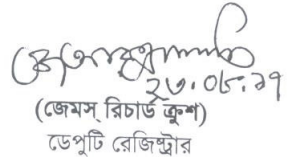 ২৩.০৮.১৭
(জেমস্ রিচার্ড ক্রুশ)
ডেপুটি রেজিষ্ট্রার